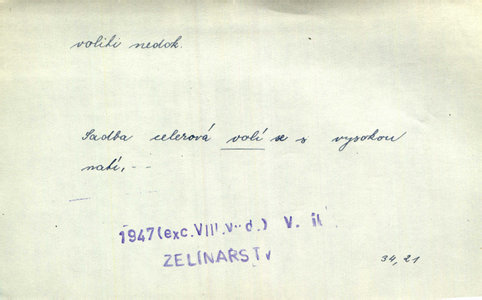 voliti nedok.
Sadba celerová volí se s vysokou
natí, --
1947 (exc. VIII. v. d.) V.
ZELINARSTv
34, 21